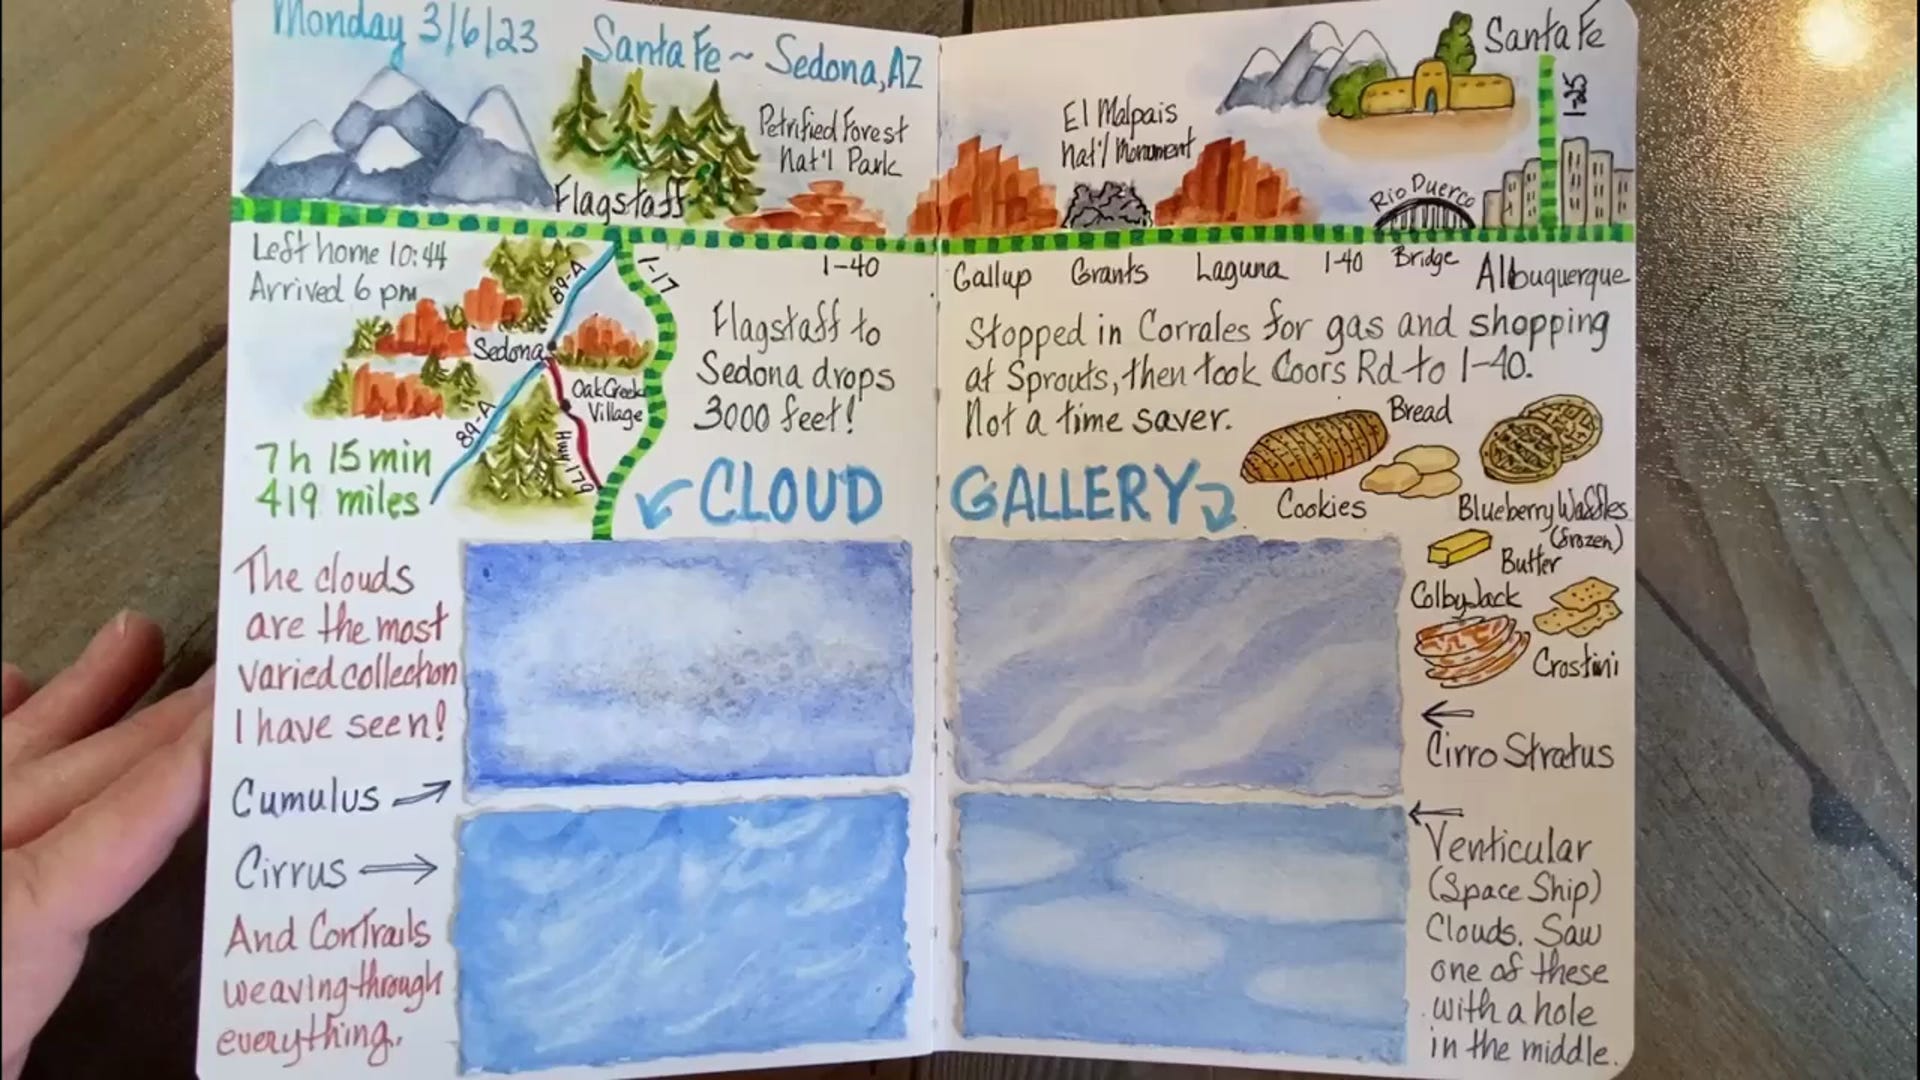 Monday 3/6/23
Santa Fe ~ Sedona, AZ
Petrified Forest
Nat'l Park
Flagstaff
Left home 10:44
Arrived 6 pm
89-A
I-17
I-40
Sedona
Oak Creek
Village
89-A
Hwy 179
Flagstaff to
Sedona drops
3000 feet!
7 h 15 min
419 miles
CLOUD
The clouds
are the most
varied collection
I have seen!
Cumulus
Cirrus
And ConTrails
weaving through
everything.
Santa Fe
I-25
El Malpais
Nat'l Monument
Rio Puerco
Bridge
Gallup
Grants
Laguna
I-40
Albuquerque
Stopped in Corrales for gas and shopping
at Sprouts, then took Coors Rd to I-40.
Not a time saver.
GALLERY
Bread
Cookies
Blueberry Waffles
(frozen)
Butter
Colby Jack
Crostini
Cirro Stratus
Venticular
(Space Ship)
Clouds. Saw
one of these
with a hole
in the middle.